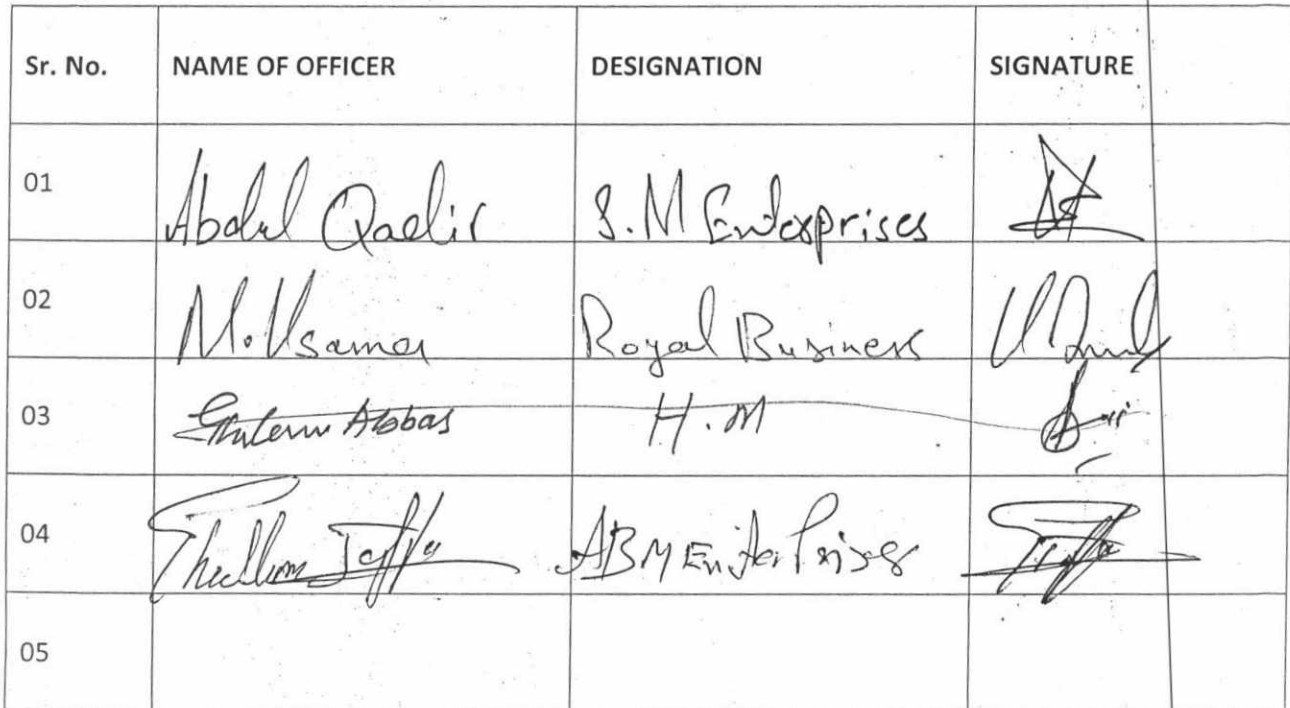 Sr. No. NAME OF OFFICER DESIGNATION SIGNATURE
01 Abdul Qadir S.M Enterprises
02 M. Usama Royal Business
03 Ghulam Abbas H.M
04 ABM EnterPrises
05